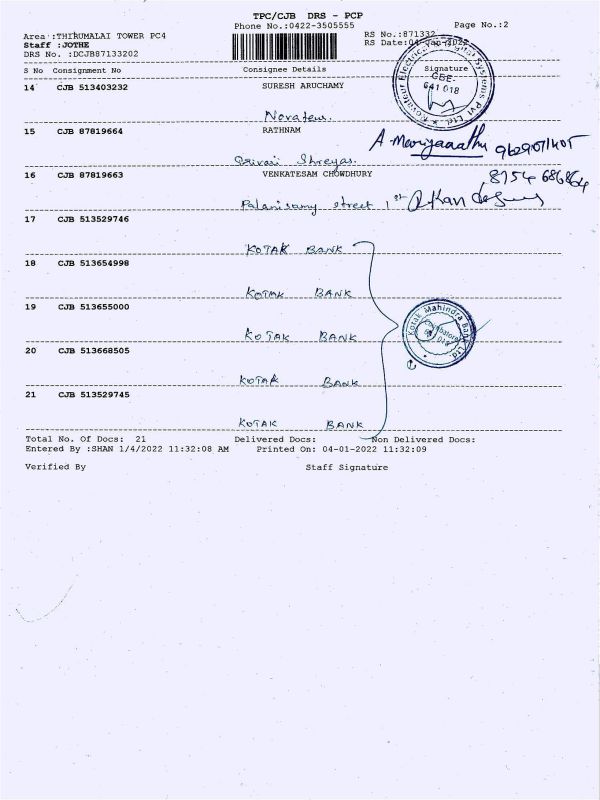 TPC/CJB DRS - PCP
Phone No.:0422-3505555 Page No.:2
Area :THIRUMALAI TOWER PC4 RS No.:871332
Staff :JOTHE RS Date:04-Jan-2022
DRS No. :DCJB87133202
S No Consignment No Consignee Details Signature
14 CJB 513403232 SURESH ARUCHAMY
CBE-
641 018
Novateur
15 CJB 87819664 RATHNAM
9629071405
Srivari Shreyas
16 CJB 87819663 VENKATESAM CHOWDHURY
8754 686864
Palanisamy street 1st
17 CJB 513529746
KOTAK BANK
18 CJB 513654998
KOTAK BANK
19 CJB 513655000
KOTAK BANK
Kotak Mahindra Bank Ltd.
Coimbatore
20 CJB 513668505
KOTAK BANK
21 CJB 513529745
KOTAK BANK
Total No. Of Docs: 21 Delivered Docs: Non Delivered Docs:
Entered By :SHAN 1/4/2022 11:32:08 AM Printed On: 04-01-2022 11:32:09
Verified By Staff Signature